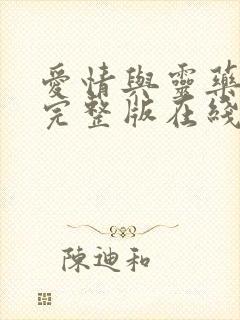 愛情與靈藥
完整版在綫
陳迪和